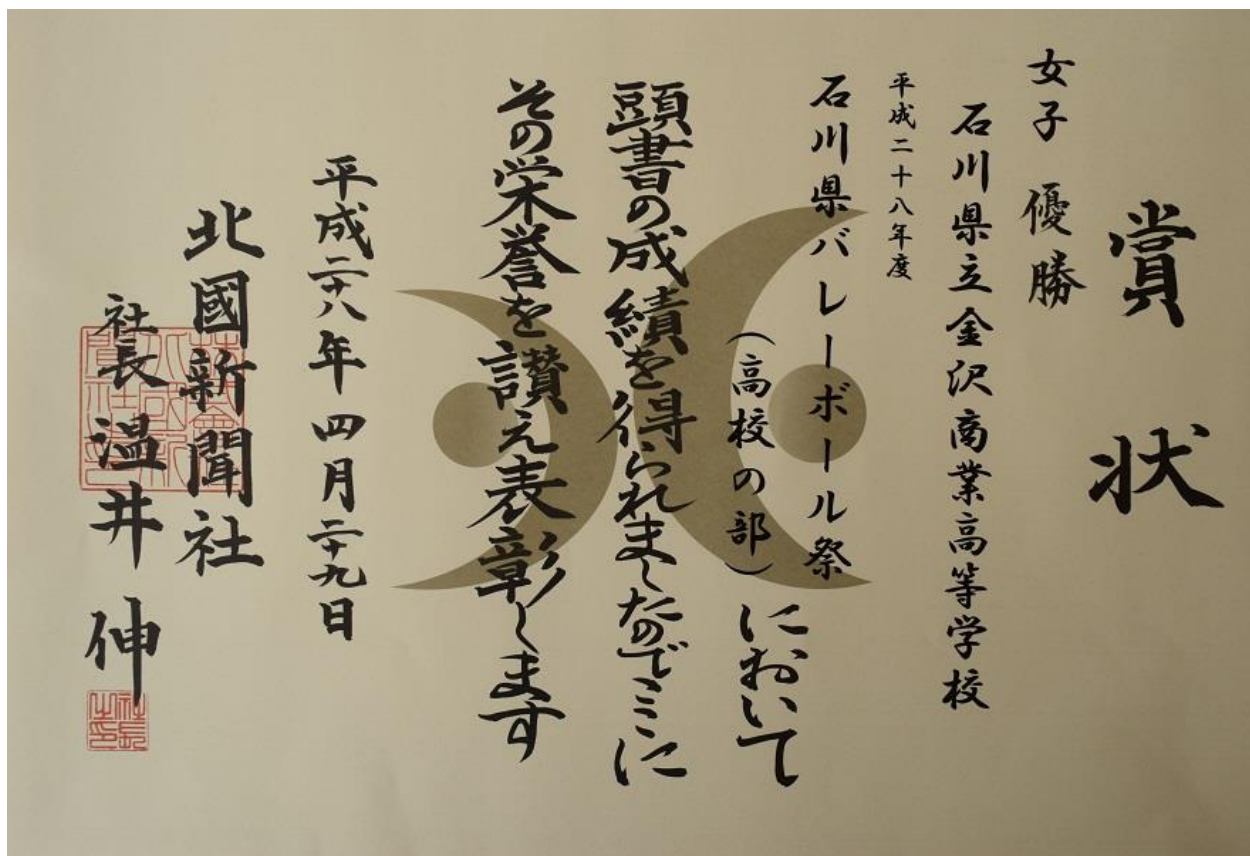 賞状
女子 優勝
石川県立金沢商業高等学校
平成二十八年度
石川県バレーボール祭
（高校の部）において
頭書の成績を得られましたのでここに
その栄誉を讃え表彰します
平成二十八年四月二十九日
北國新聞社
社長 温井 伸